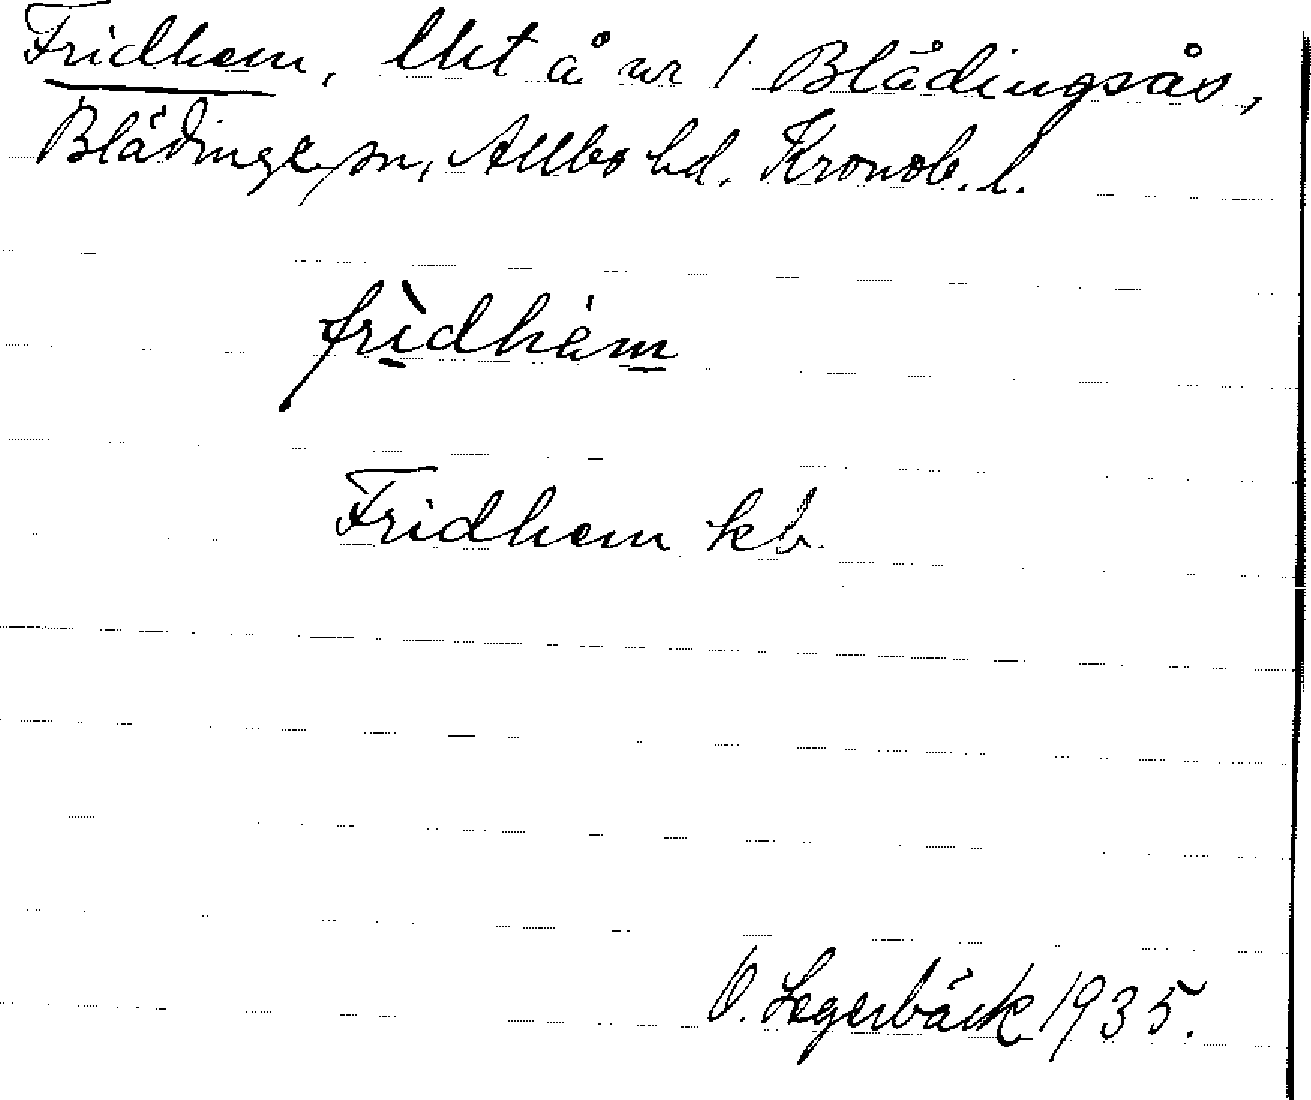 Fridhem, lht å nr 1 Blädingsås,
Blädinge sn, Allbo hd. Kronob. l.
frìdhèm
Fridhem kb.
O. Legerbäck 1935.